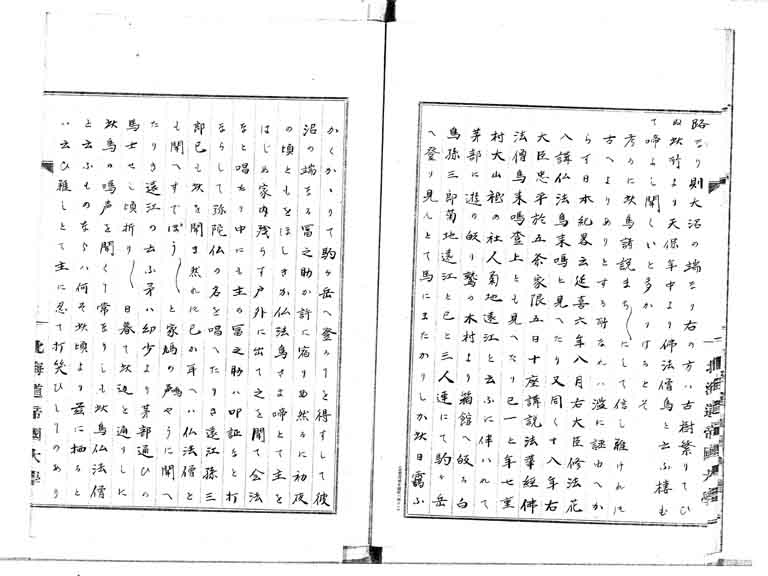 路なり則大沼の端なり右の方ハ古樹繁りてひ
ぬ此所より天保年中より佛法僧鳥と云ふ棲む
て啼よし聞しいと多かりけるとそ
考るに此鳥諸説まち〳〵にして信し難けれは
古へよりありとする所なんハ濫に誣ゆへか
らす日本紀畧云延喜六年八月右大臣修法花
八講仏法鳥来鳴と見へたり又同しく十八年右
大臣忠平於五条家限五日十座講説法華經佛
法僧鳥来鳴堂上とも見へたり已一と年七重
村大山祗の社人菊地遠江と云ふに伴ハれて
茅部に遊の皈り鷲の木村より箱館へ皈る白
鳥孫三郎菊地遠江と已と三人連にて駒ヶ岳
へ登り見んとて馬にまたかりしか此日靄ふ
北海道帝國大學
かくかゝりて駒ヶ岳へ登ることを得すして彼
沼の端なる冨之助か許に宿りぬ然るに初夜
の頃ともをほしきか仏法鳥さま啼とて主を
はしめ家内残らす戸外に出て之を聞て念法
なと唱る中にも主の冨之助ハ叩鉦なと打
ならして弥陀仏の名を唱へたりき遠江孫三
郎已も此を聞き然れに已か耳へハ仏法僧と
も聞へすてぽう〳〵と家鳩の鳴声のやうに聞へ
たりき遠江の云ふ矛ハ幼少より茅部通ひの
馬士せし頃折り〳〵日暮て此辺を通りしに
此鳥の鳴声を聞くて常なりしも此鳥仏法僧
と云ふものならハ何そ此頃より茲に栖ると
ハ云ひ難しとて主に忍て打笑ひしてのあり
北海道帝國大學